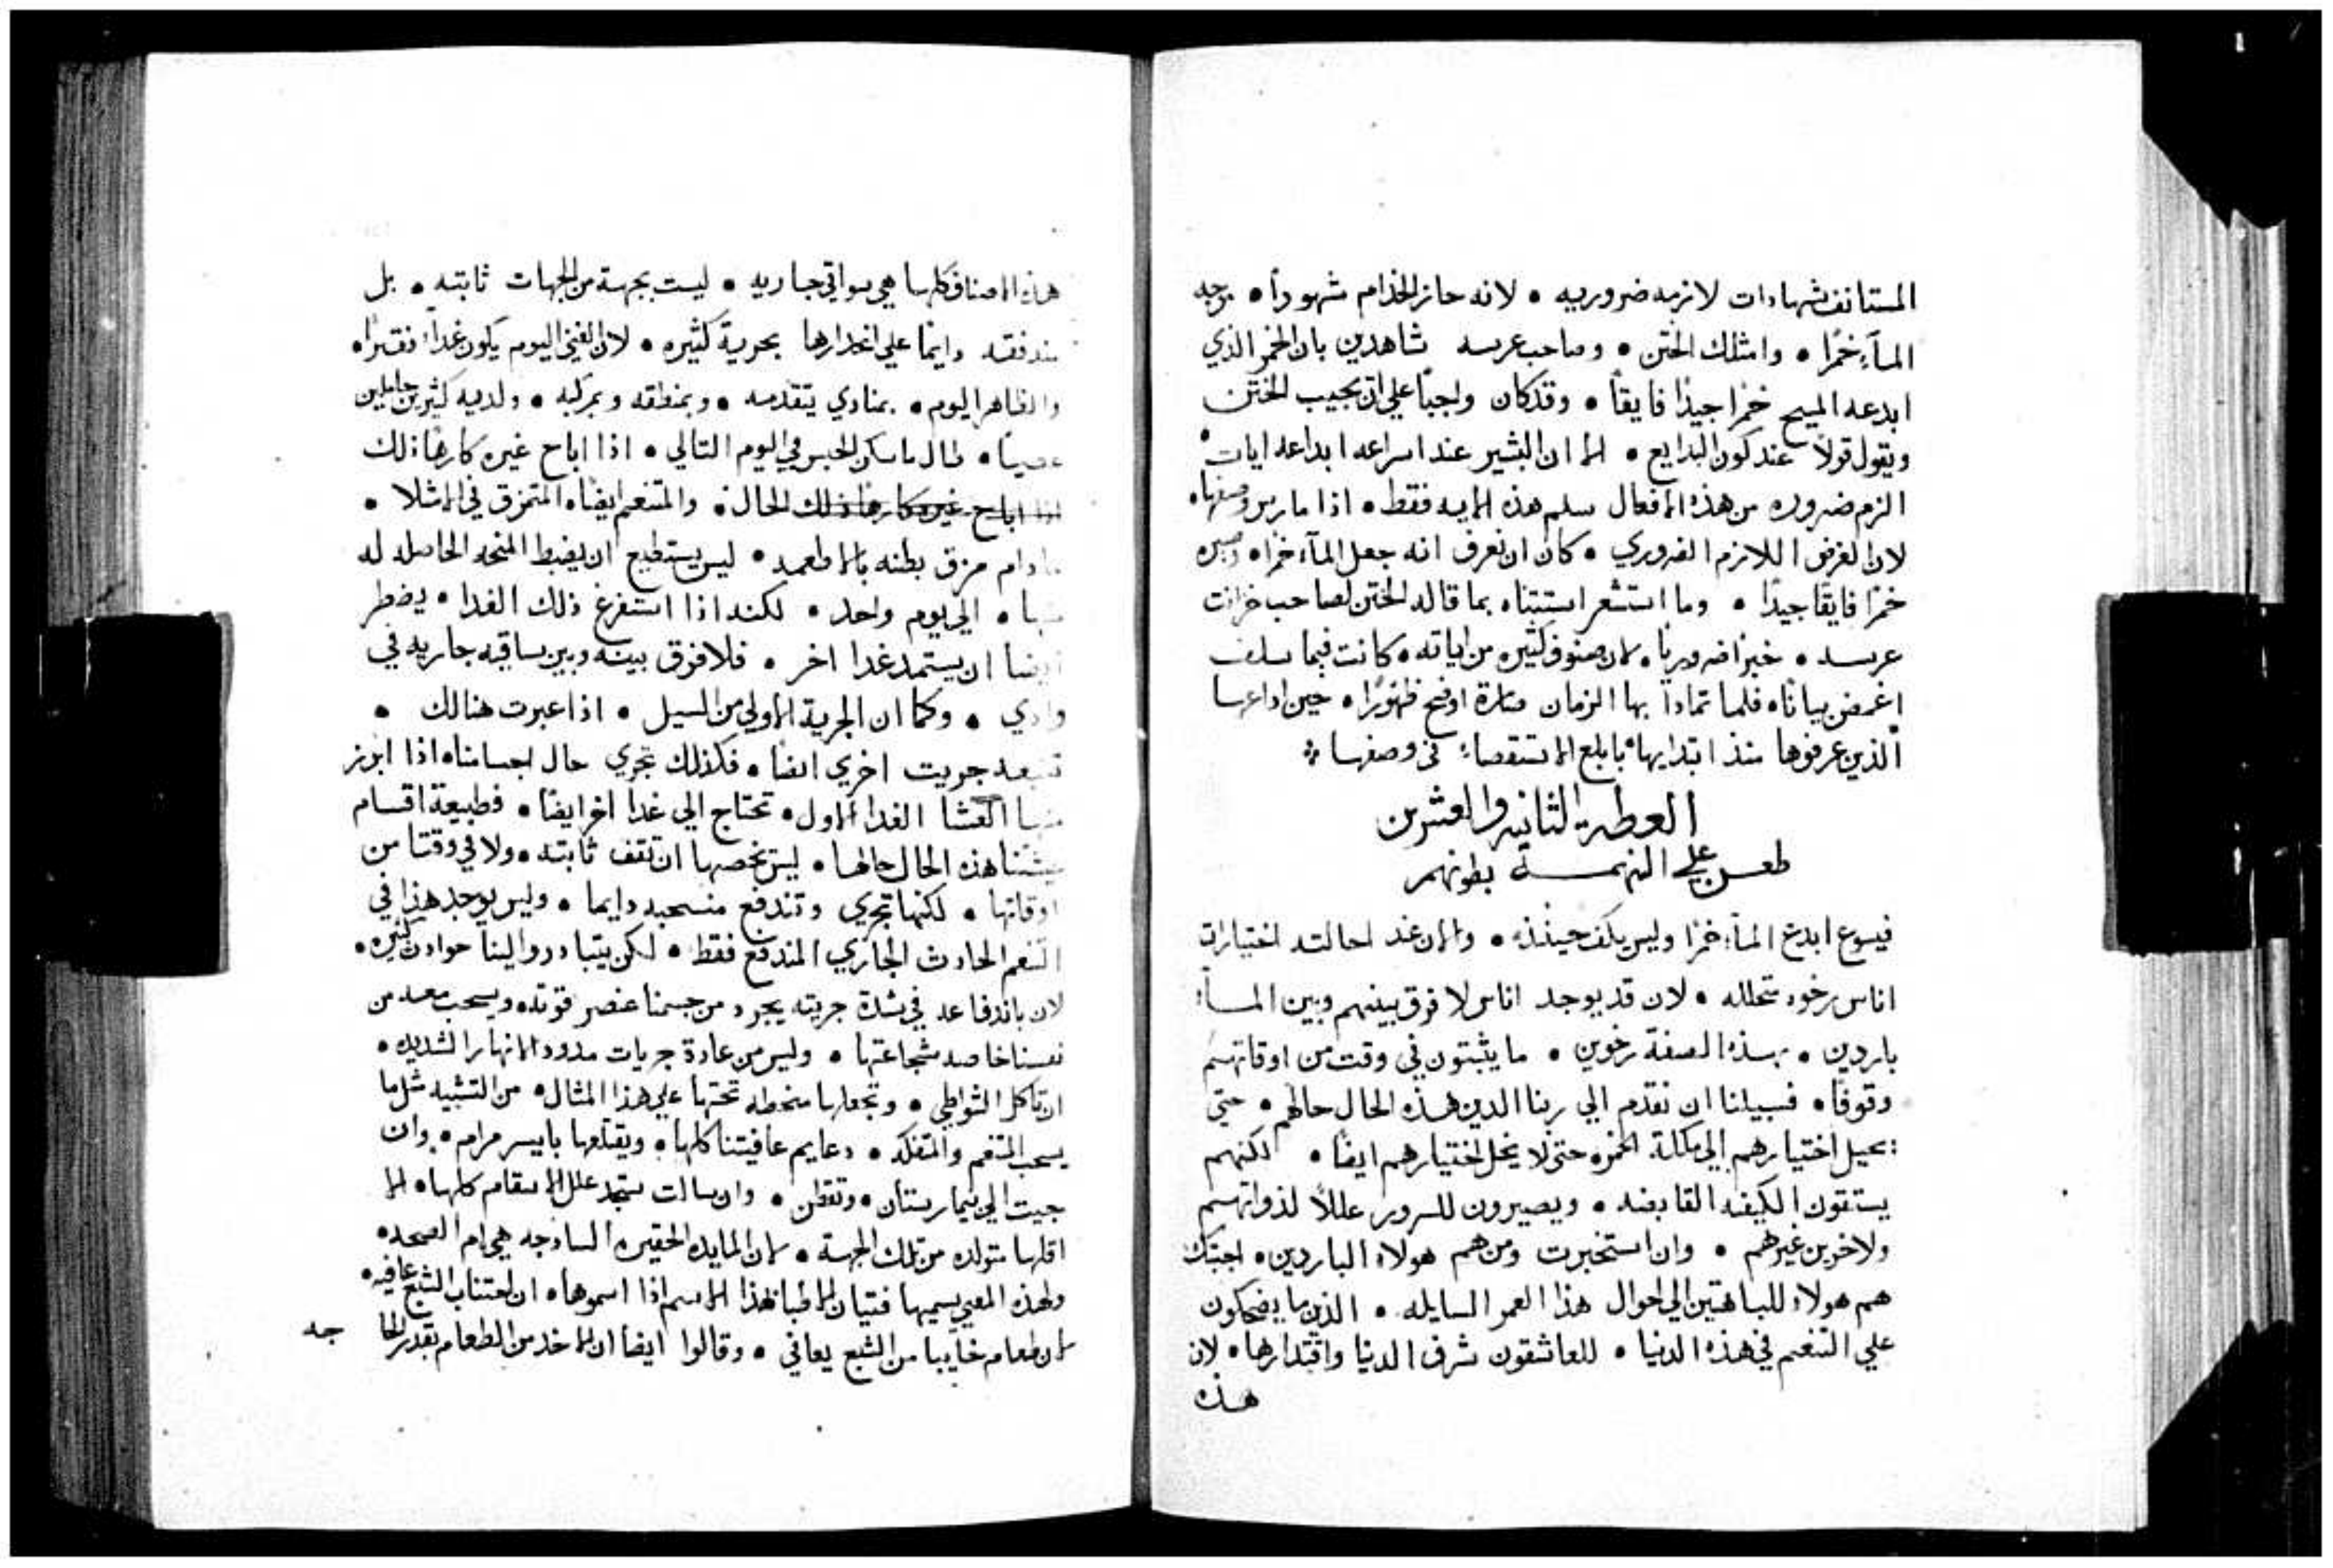 المستانف شهادات لازمه ضروريه • لانه حاز الخدام شهوداً • بوجه
المآء خمرًا • وامثلك الختن • وصاحب عرسه شاهدين بان الخمر الذي
ابدعه المسيح خمرًا جيدًا فايقاً • وقد كان واجباً علي ان يجيب الختن
ويقول قولاً عند كون البدايع • الا ان البشير عند اسراعه ابداعه ايات
الزم ضروره من هذه الافعال سلم هذه الايه فقط • اذا مارس وصفها •
لان الغرض اللازم الضروري • كان ان نعرف انه جعل المآء خمرًا • وصيره
خمرًا فايقًا جيدًا • وما استشعر استثناه بما قاله الختن لصاحب خزانت
عرسه • خبرًا ضروريًا • لان صنوف كثيره من اياته • كانت فيما سلف
اغمض بيانًا • فلما تمادا بها الزمان صارة اوضح ظهورًا • حين اداعها
الذين عرفوها منذ ابتدايها بابلع الاستقصاء في وصفها
العظه الثانيه والعشرين
طعن علي النهمه بطونهم
فيسوع ابدع المآء خمرًا وليس يكف حينئذ • والان عند احالته اختيارات
اناس رخوه متحلله • لان قد يوجد اناس لا فرق بينهم وبين المآء
باردين • بهذه الصفة رخوين • ما يثبتون في وقت من اوقاتهم
وقوفًا • فسبيلنا ان نقدم الي ربنا الدين هذه الحال حالهم • حتي
يحيل اختيارهم الي ملكة الخمره حتي لا ينحل اختيارهم ايضًا • لكنهم
يستقون الكيفه القابضه • ويصيرون للسرور عللاً لذواتهم
ولاخرين غيرهم • وان استخبرت ومن هم هولاء الباردين • اجبتك
هم هولاء للباهتين الي احوال هذا العمر السايله • الذين ما يضحكون
علي التنعم في هذه الدنيا • للعاشقون شرف الدنيا واقتدارها • لان
هذه
هذه الاصناف كلها هي سواقي جاريه • ليست بجهة من الجهات ثابته • بل
مندفقه دايمًا علي انحدارها بجرية كثيره • لان الغني اليوم يكون غداً فقيرًا •
والظاهر اليوم • بمنادي يتقدمه • وبمنطقه وبمركبه • ولديه كثيرين حاملين
عصيًا • طال ما سكن الحبس في اليوم التالي • اذا اباح غيره كارهًا ذلك
اذا اباح غيره كارها ذلك الحال • والمتنعم ايضًا • المتمزق في الامتلا •
مادام مزق بطنه بالاطعمه • ليس يستطيع ان يضبط المنحه الحاصله له
منها • الي يوم واحد • لكنه اذا استفرغ ذلك الغدا • يضطر
ايضا ان يستمد غدا اخر • فلا فرق بينه وبين ساقيه جاريه في
وادي • وكما ان الجرية الاولي من السيل • اذا عبرت هنالك •
تتبعه جريت اخري ايضًا • فكذلك تجري حال اجسامنا • اذا ابرز
منها الغدا الاول • تحتاج الي غدا اخر ايضًا • فطبيعة اقسام
هذه الحال حالها • ليس يخصها ان تقف ثابته • ولا في وقتا من
اوقاتها • لكنها تجري وتندفع منسحبه دايما • وليس يوجد هذا في
التنعم الحادث الجاري المندفع فقط • لكن يتبادر والينا حوادث كثيره •
لان باندفاعه في شدة جريته يجرد من جسمنا عنصر قوته • ويسحب معه من
نفسنا خاصه شجاعتها • وليس من عادة جريات مدود الانهار الشديده •
ان تاكل الشواطي • وتجعلها منحطه تحتها علي هذا المثال • من التشييد مثل ما
يسحب التنعم والتفكه • دعايم عافيتنا كلها • ويقتلعها بايسر مرام • وان
جيت الي بيمارستان • وتفطن • وان سالت ستجد علل الاسقام كلها • الا
اقلها متولده من تلك الجهة • لان المايده الحقيره الساذجه هي ام الصحه •
ولهذه المعني يسميها فتيان الاطبا بهذا الاسم اذا اسموها • ان اجتناب الشبع عافيه •
لان طعام خايبا من الشبع يعافي • وقالوا ايضا ان الاخد من الطعام بقدر الحا
جه